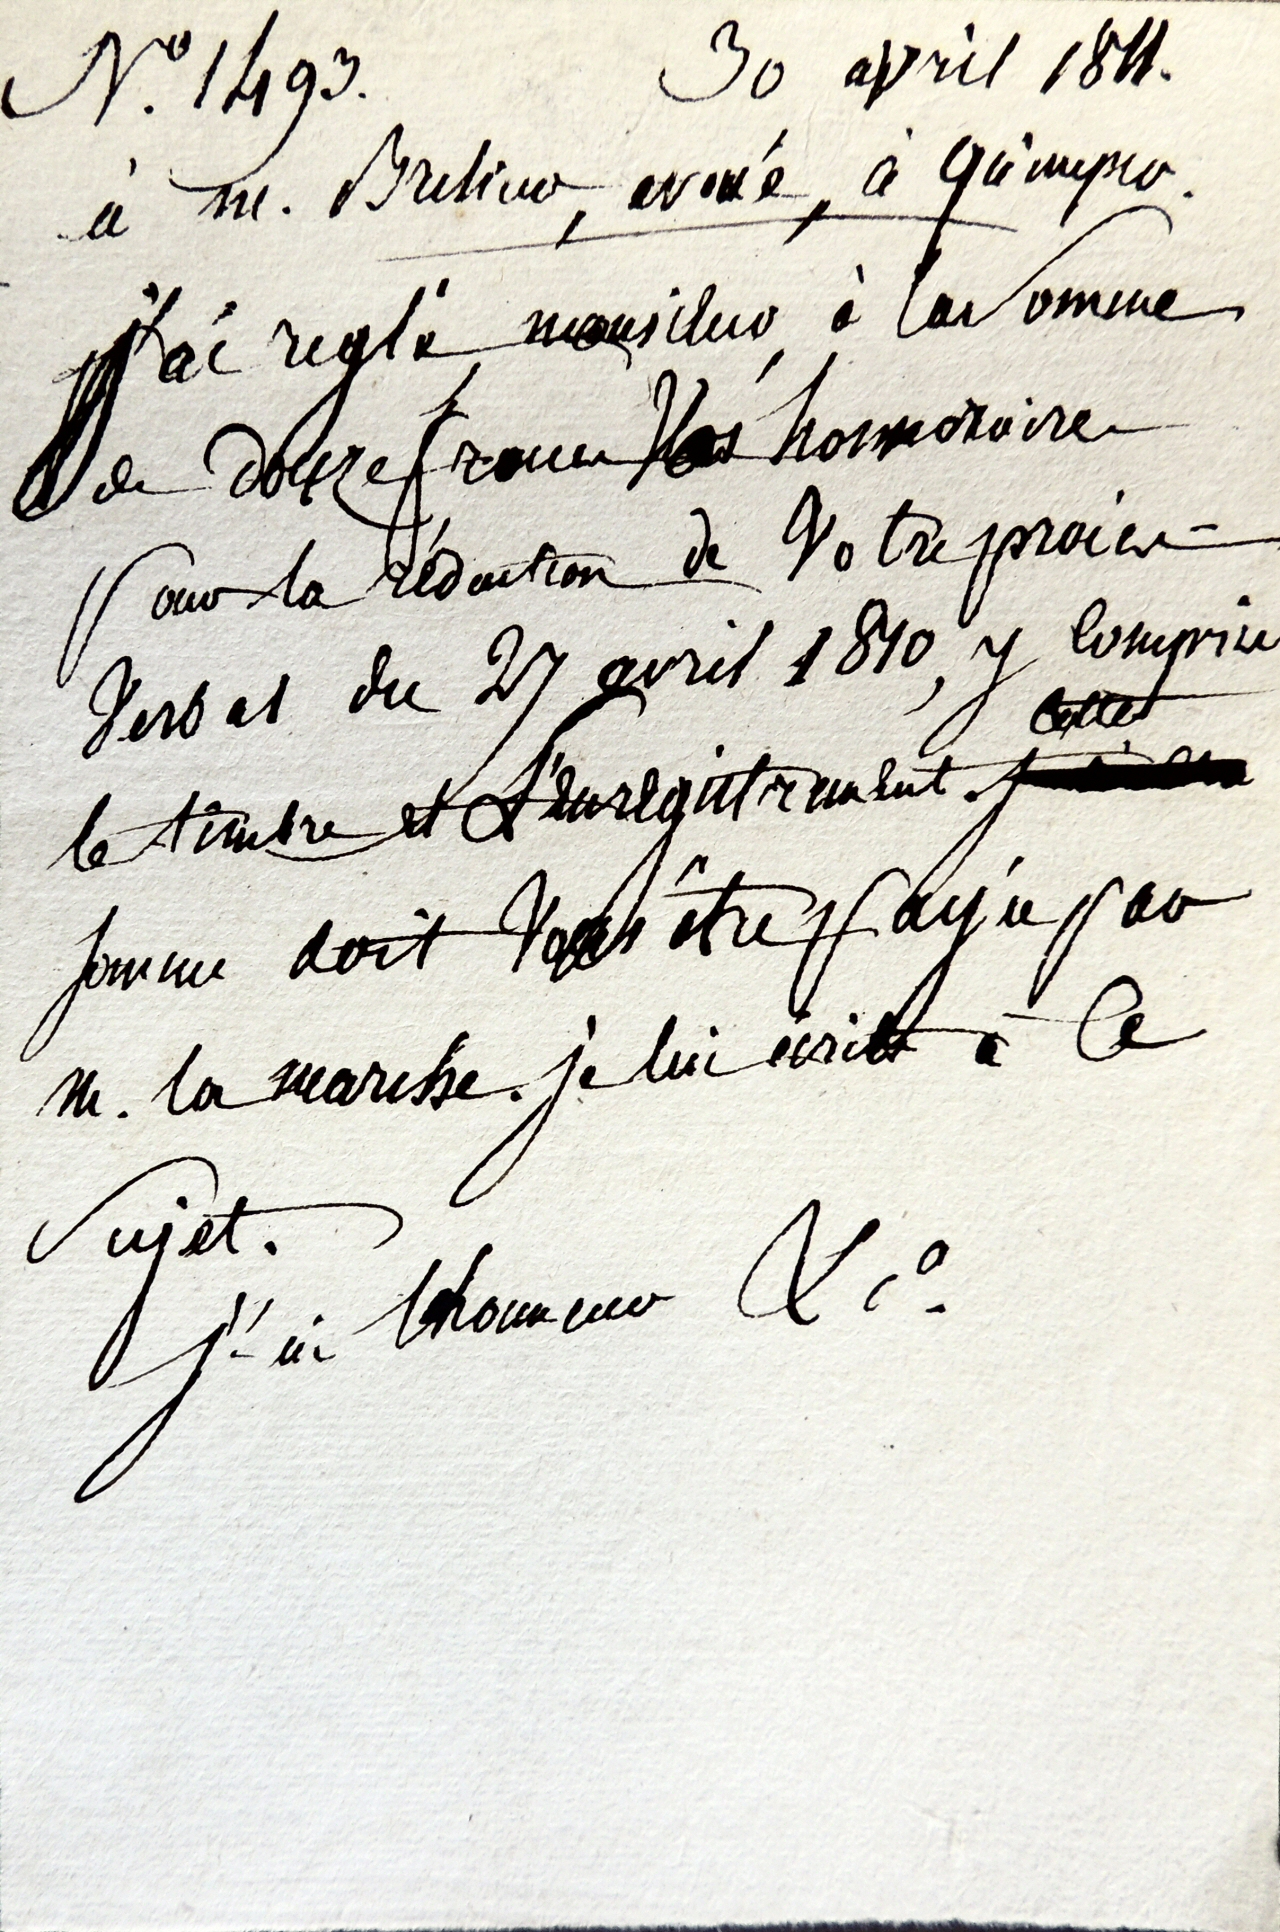 N.° 1493. 30 avril 1811.
à m. Breliver, avoué, à Quimper.
j'ai reglé, monsieur, à la Somme
de douze francs Vos honoraires
pour la rédaction de Votre procès-
Verbal du 27 avril 1810, y compris
le timbre et L'enregistrement. cette
somme doit Vous être payée par
m. la marche. je lui écris à Ce
Sujet.
j'ai lhonneur &c.ª